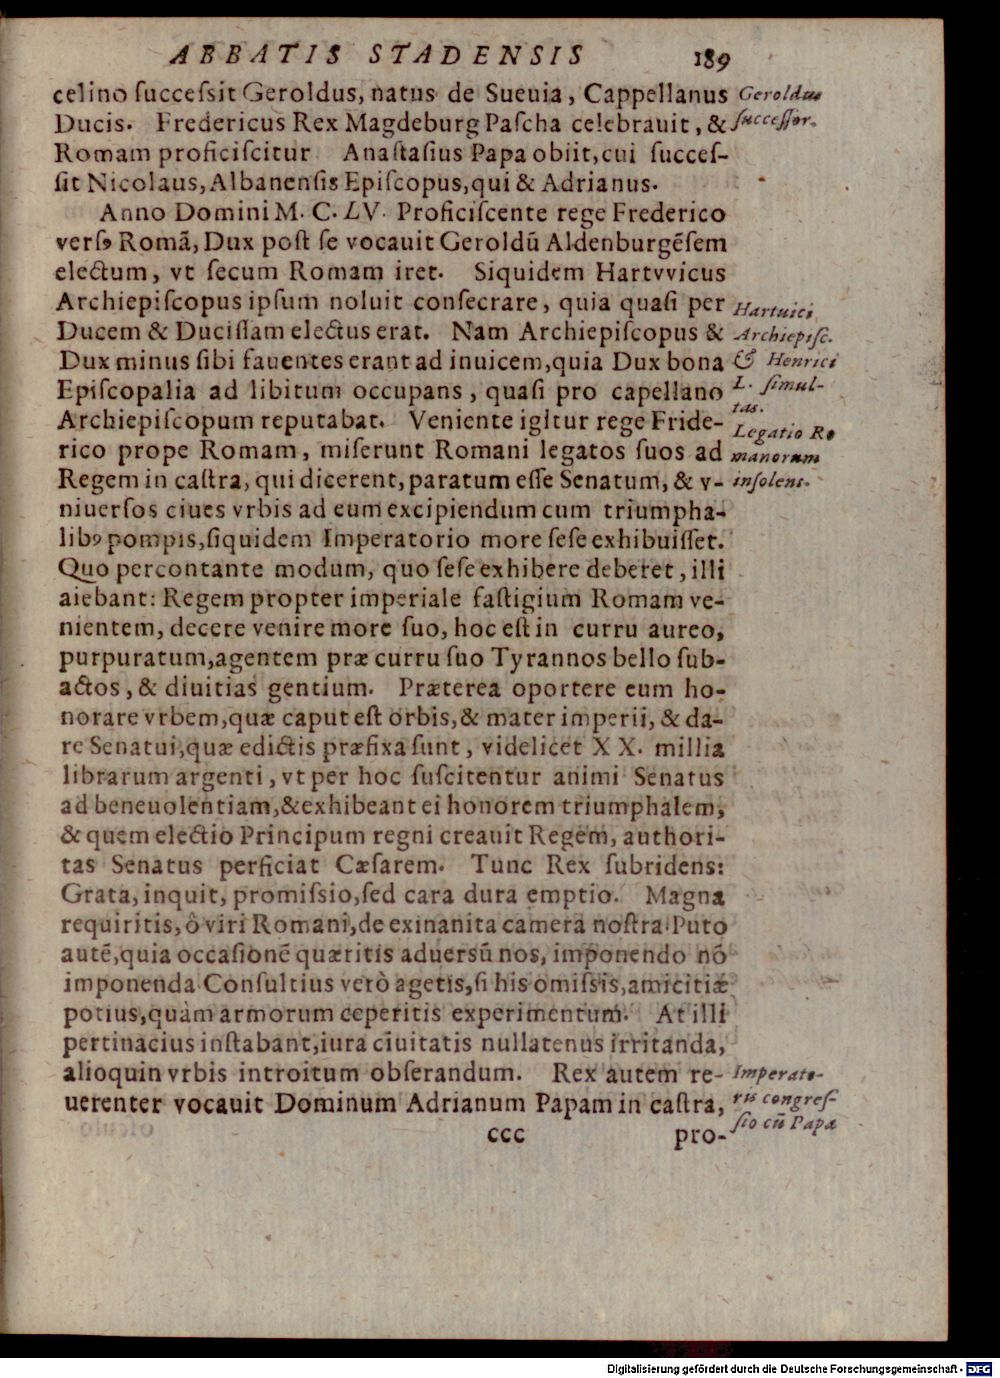 ABBATIS STADENSIS 189
celino ſucceſsit Geroldus, natus de Sueuia, Cappellanus
Ducis. Fredericus Rex Magdeburg Paſcha celebrauit, &
Romam proficiſcitur Anaſtaſius Papa obiit, cui ſucceſ-
ſit Nicolaus, Albanenſis Epiſcopus, qui & Adrianus.
Geroldus
ſucceſſor.
Anno Domini M. C. LV. Proficiſcente rege Frederico
verſꝰ Romã, Dux poſt ſe vocauit Geroldũ Aldenburgẽſem
electum, vt ſecum Romam iret. Siquidem Hartvvicus
Archiepiſcopus ipſum noluit conſecrare, quia quaſi per
Ducem & Duciſſam electus erat. Nam Archiepiſcopus &
Dux minus ſibi fauentes erant ad inuicem, quia Dux bona
Epiſcopalia ad libitum occupans, quaſi pro capellano
Archiepiſcopum reputabat. Veniente igitur rege Fride-
rico prope Romam, miſerunt Romani legatos ſuos ad
Regem in caſtra, qui dicerent, paratum eſſe Senatum, & v-
niuerſos ciues vrbis ad eum excipiendum cum triumpha-
libꝰ pompis, ſiquidem Imperatorio more ſeſe exhibuiſſet.
Quo percontante modum, quo ſeſe exhibere deberet, illi
aiebant: Regem propter imperiale faſtigium Romam ve-
nientem, decere venire more ſuo, hoc eſt in curru aureo,
purpuratum, agentem præ curru ſuo Tyrannos bello ſub-
actos, & diuitias gentium. Præterea oportere eum ho-
norare vrbem, quæ caput eſt orbis, & mater imperii, & da-
re Senatui, quæ edictis præfixa ſunt, videlicet XX. millia
librarum argenti, vt per hoc ſuſcitentur animi Senatus
ad beneuolentiam, & exhibeant ei honorem triumphalem,
& quem electio Principum regni creauit Regem, authori-
tas Senatus perficiat Cæſarem. Tunc Rex ſubridens:
Grata, inquit, promiſsio, ſed cara dura emptio. Magna
requiritis, ô viri Romani, de exinanita camera noſtra. Puto
autẽ, quia occaſionẽ quæritis aduersũ nos, imponendo nõ
imponenda. Conſultius verò agetis, ſi his omiſsis, amicitiæ
potius, quàm armorum ceperitis experimentum. At illi
pertinacius inſtabant, iura ciuitatis nullatenus irritanda,
alioquin vrbis introitum obſerandum. Rex autem re-
uerenter vocauit Dominum Adrianum Papam in caſtra,
Hartuici
Archiepiſc.
& Henrici
L. ſimul-
tas.
Legatio Ro
manorum
inſolens.
Imperato-
ris congreſ-
ſio cũ Papa
ccc pro-
Digitalisierung gefördert durch die Deutsche Forschungsgemeinschaft - DFG